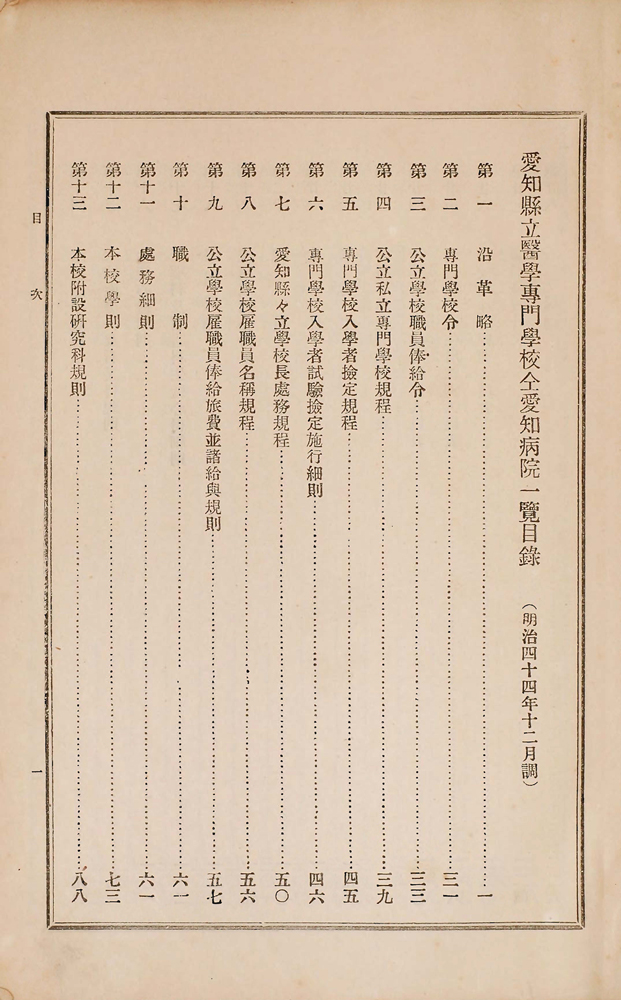 愛知縣立醫學專門學校仝愛知病院一覽目錄 (明治四十四年十二月調)
第一 沿革略……一
第二 專門學校令……三一
第三 公立學校職員俸給令……三三
第四 公立私立專門學校規程……三九
第五 專門學校入學者撿定規程……四五
第六 專門學校入學者試驗撿定施行細則……四六
第七 愛知縣々立學校長處務規程……五〇
第八 公立學校雇職員名稱規程……五六
第九 公立學校雇職員俸給旅費並諸給與規則……五七
第十 職制……六一
第十一 處務細則……六一
第十二 本校學則……七三
第十三 本校附設硏究科規則……八八
目次 一